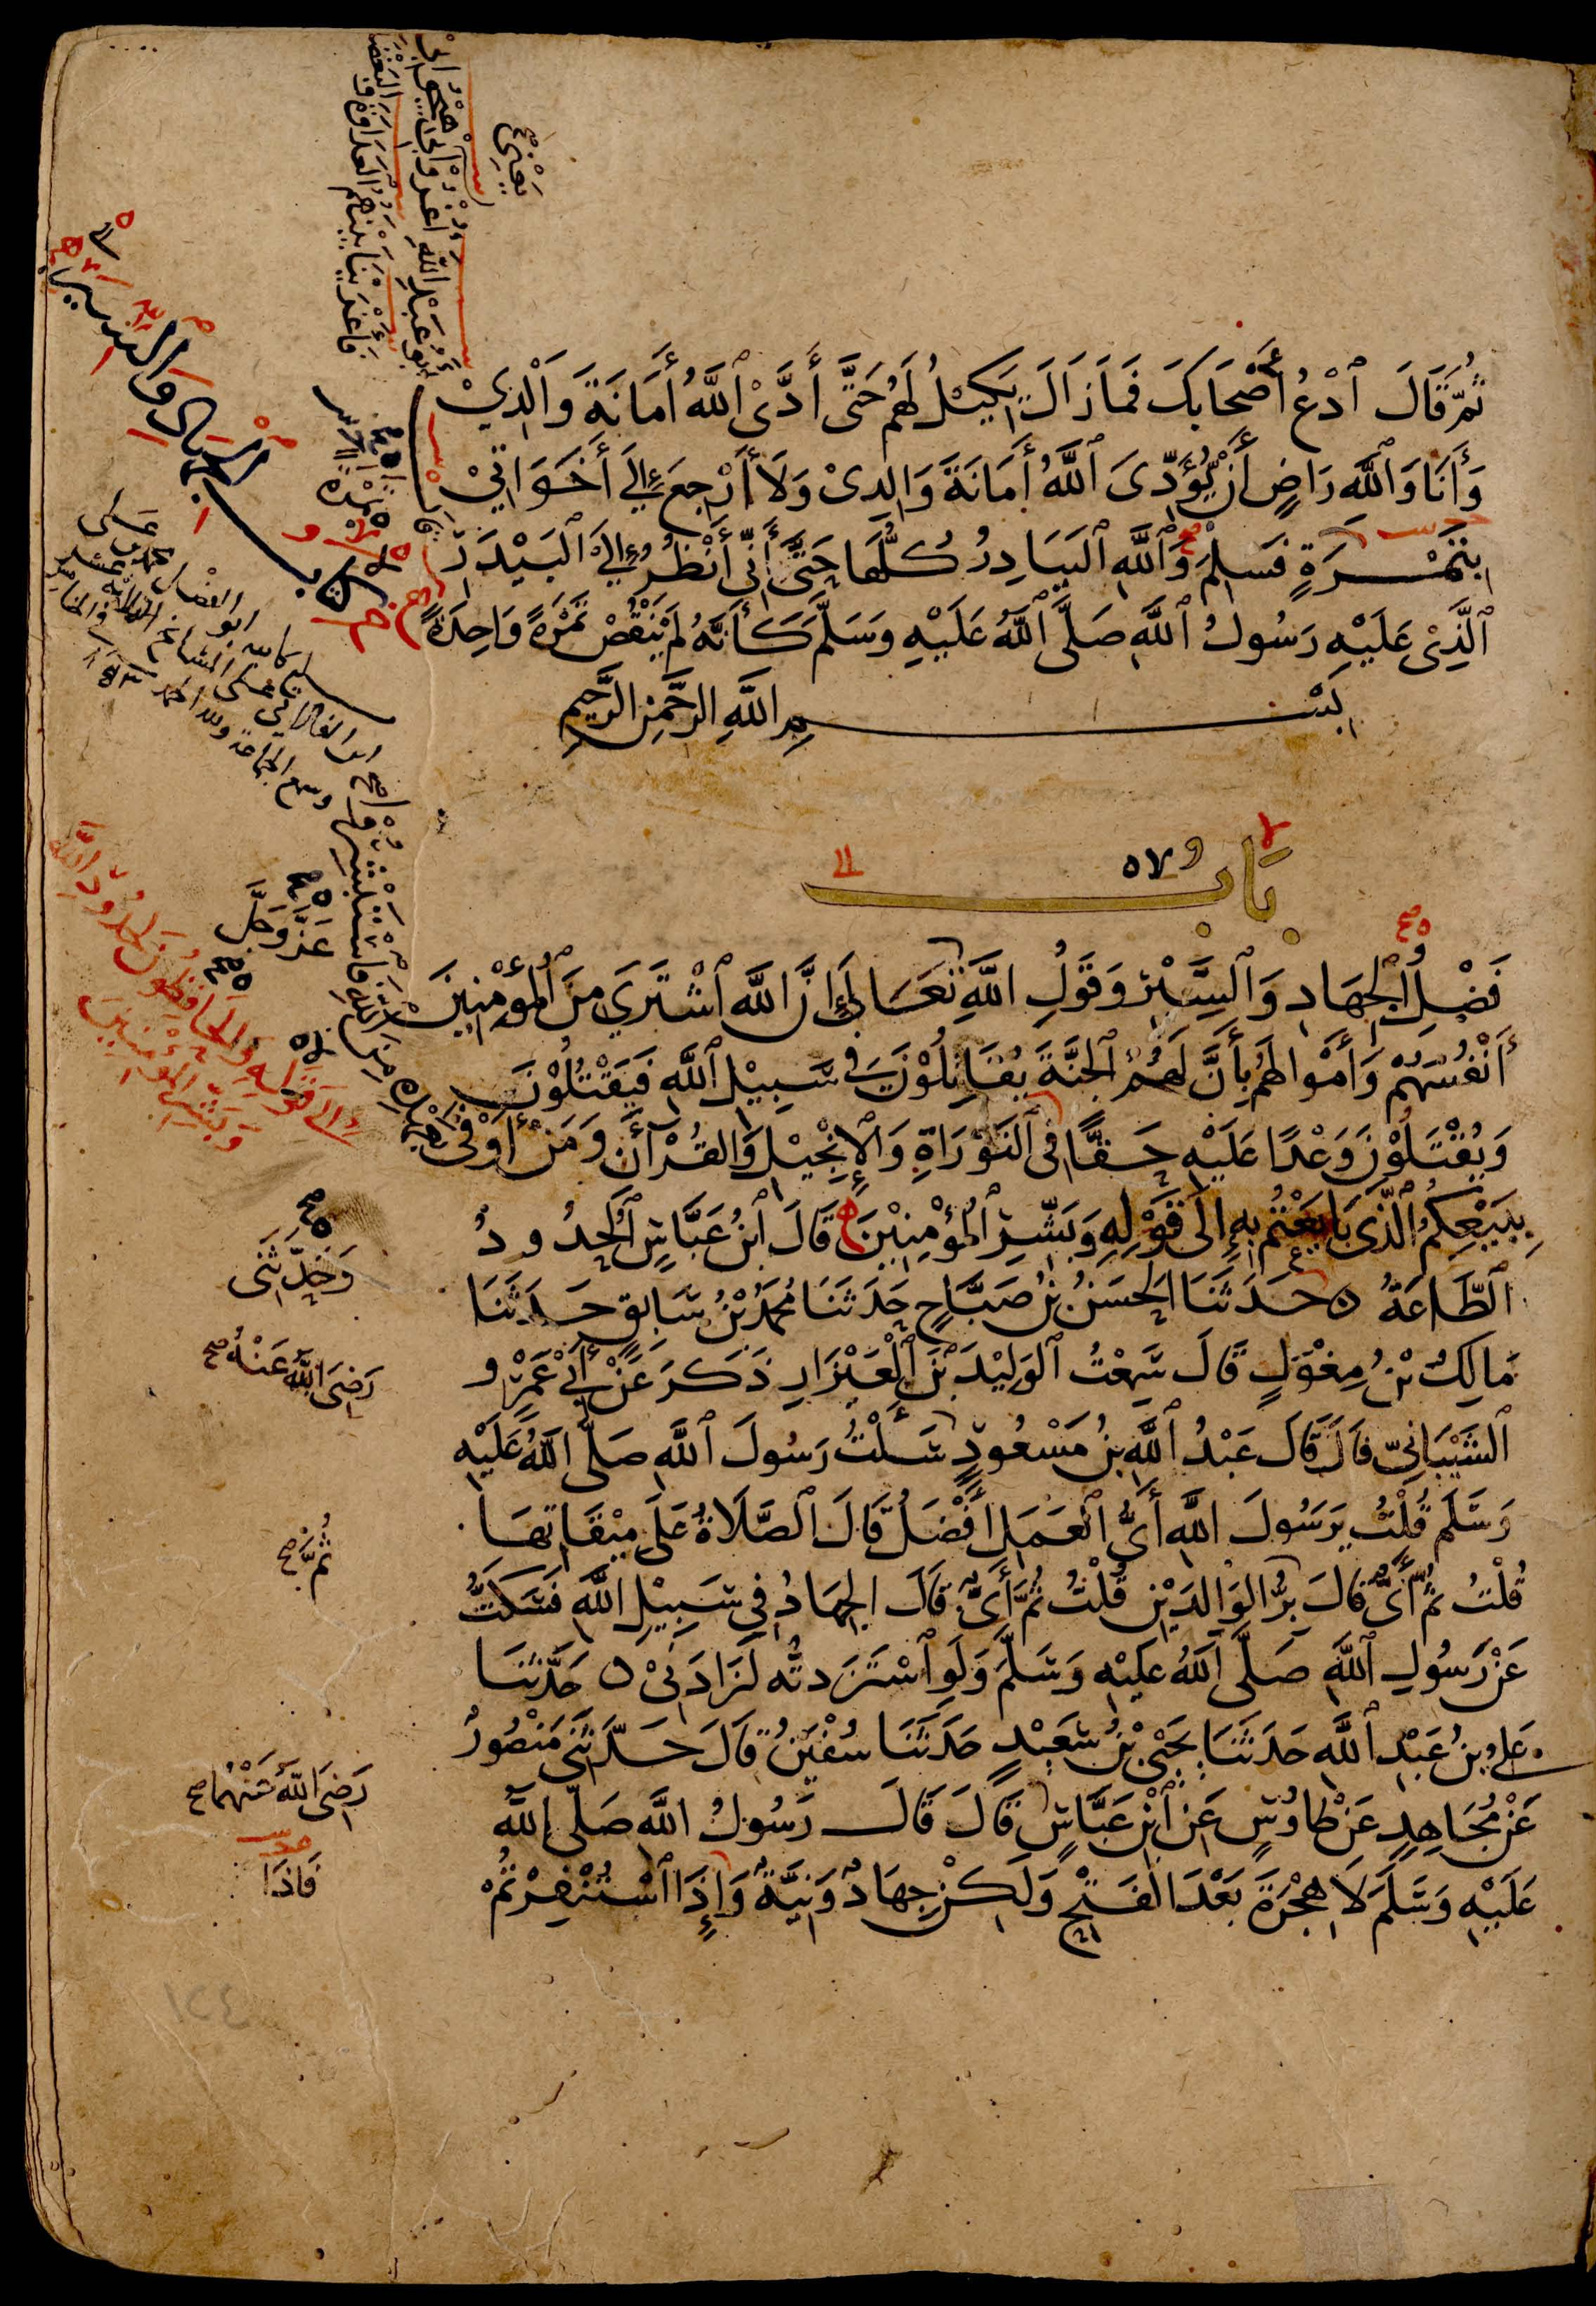 ثُمَّ قَالَ ٱدْعُ أَصْحَابَكَ فَمَا زَالَ يَكِيْلُ لَهُمْ حَتَّى أَدَّىْ ٱللَّهُ أَمَانَةَ وَالْدِيْ
وَأَنَا وَٱللَّهِ رَاضٍ أَنْ يُؤَدِّىَ ٱللَّهُ أَمَانَةَ وَالِدِىْ وَلَا أَرْجِعَ إِلَى أَخَوَاتِيْ
بِتَمْرَةٍ فَسَلِمَ وَٱللَّهِ ٱلبَيَادِرُ كُلُّهَا حَتَّى أَنِّى أَنْظُرُ إِلَىْ ٱلبَيْدَرِ
ٱلَّذِىْ عَلَيْهِ رَسُولُ ٱللَّهِ صَلَّى ٱللَّهُ عَلَيْهِ وَسَلَّمَ كَأَنَّهُ لَمْ يَنْقُصْ تَمْرَةً وَاحِدَةً
بِسْمِ اللَّهِ الرَّحْمٰنِ الرَّحِيمِ
بَابُ
فَضْلُ ٱلْجِهَادِ وَٱلسِّيَرْ وَقَوْلُِ اللَّهِ تَعَالَى إِنَّ اللَّهَ ٱشْتَرَي مِنَ ٱلمُؤْمِنِينَ
أَنْفُسَهُمْ وَأَمْوَالَهُمْ بِأَنَّ لَهُمُ ٱلْجَنَّةَ يُقَاتِلُوْنَ فِى سَبِيْلِ ٱللَّهِ فَيَقْتُلُوْنَ
وَيُقْتَلُوْنَ وَعْدًا عَلَيْهِ حَقًّا فِى ٱلتَّوْرَاةِ وَٱلإِنْجِيْلِ وَالقُرْآنِ وَمَنْ أَوْفَى بِعَهْدِهِ مِنَ اللَّهِ فَاسْتَبْشِرُوا
بِبَيْعِكُمُ ٱلَّذِى بَايَعْتُمْ بِهِ إِلَى قَوْلِهِ وَبَشِّرِ ٱلْمُؤْمِنِيْنَ قَالَ ٱبْنُ عَبَّاسٍ ٱلْحُدُودُ
ٱلطَّاعَةُ ه حَدَّثَنَا ٱلْحَسَنُ بْنُ صَبَّاحٍ حَدَّثَنَا مُحَمَّدُ بْنُ سَابِقٍ حَدَّثَنَا
مَالِكُ بْنُ مِغْوَلٍ قَالَ سَمِعْتُ ٱلوَلِيْدَ بْنَ ٱلْعَيْزَارِ ذَكَرَ عَنْ أَبِىْ عَمْرٍو
ٱلشَّيْبَانِىِّ قَالَ قَالَ عَبْدُ ٱللَّهِ بْنُ مَسْعُودٍ سَأَلْتُ رَسُولَ ٱللَّهِ صَلَّى ٱللَّهُ عَلَيْهِ
وَسَلَّمَ قُلْتُ يَرَسُولَ اللَّهِ أَيُّ ٱلْعَمَلِ أَفْضَلُ قَالَ ٱلصَّلَاةُ عَلَى مِيْقَاتِهَا
قُلْتُ ثُمَّ أَىٌّ قَالَ بِرُّ الوَالِدَيْنِ قُلْتُ ثُمَّ أَىٌّ قَالَ الْجِهَادُ فِي سَبِيْلِ اللَّهِ فَسَكَتُّ
عَنْ رَسُولِ ٱللَّهِ صَلَّى ٱللَّهُ عَلَيْهِ وَسَلَّمَ وَلَوِ ٱسْتَزَدتُّه لَزَادَنِىْ ه حَدَّثَنَا
عَلِيُّ بْنُ عَبْدِ ٱللَّهِ حَدَّثَنَا يَحْيَى بْنُ سَعِيْدٍ حَدَّثَنَا سُفْيَنُ قَالَ حَدَّثَنِى مَنْصُورٌ
عَنْ مُجَاهِدٍ عَنْ طَاوُسٍ عَنِ ٱبْنِ عَبَّاسٍ قَالَ قَالَ رَسُولُ اللَّهِ صَلَّى ٱللَّهُ
عَلَيْهِ وَسَلَّمَ لَا هِجْرَةَ بَعْدَ الْفَتْحِ وَلَكِنْ جِهَادٌ وَنِيَّةٌ وَإِذَا ٱسْتُنْفِرْتُمْ
يَعْنِى صح
فَأَغْرَيْنَا بَيْنَهُمُ العَدَاوَةَ
كتاب الجهاد والسير
عَزَّ وَجَلَّ
إِلَى قَوْلِهِ وَالْحَافِظُونَ لِحُدُودِ اللَّهِ
وَبَشِّرِ الْمُؤْمِنِينَ
وَحَدَّثَنِى
رَضِىَ اللَّهُ عَنْهُ صح
ثُمَّ صح
رَضِىَ اللَّهُ عَنْهُمَا صح
فَاذَا
١٢٤